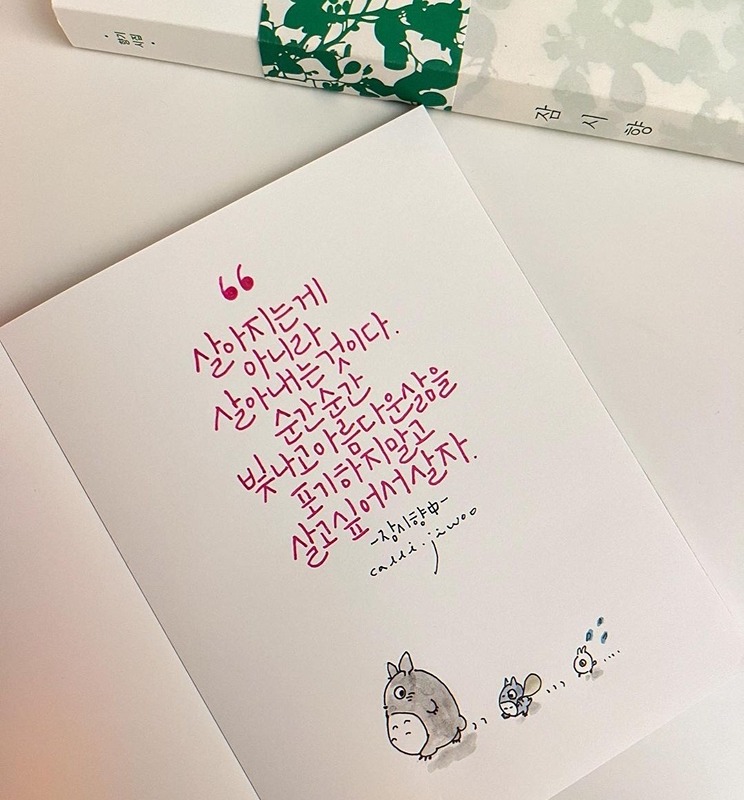 향기
시집
잠시향
살아지는게
아니라
살아내는것이다.
순간순간
빛나고아름다운삶을
포기하지말고
살고싶어서살자.
-잠시향中-
calli.jiwoo